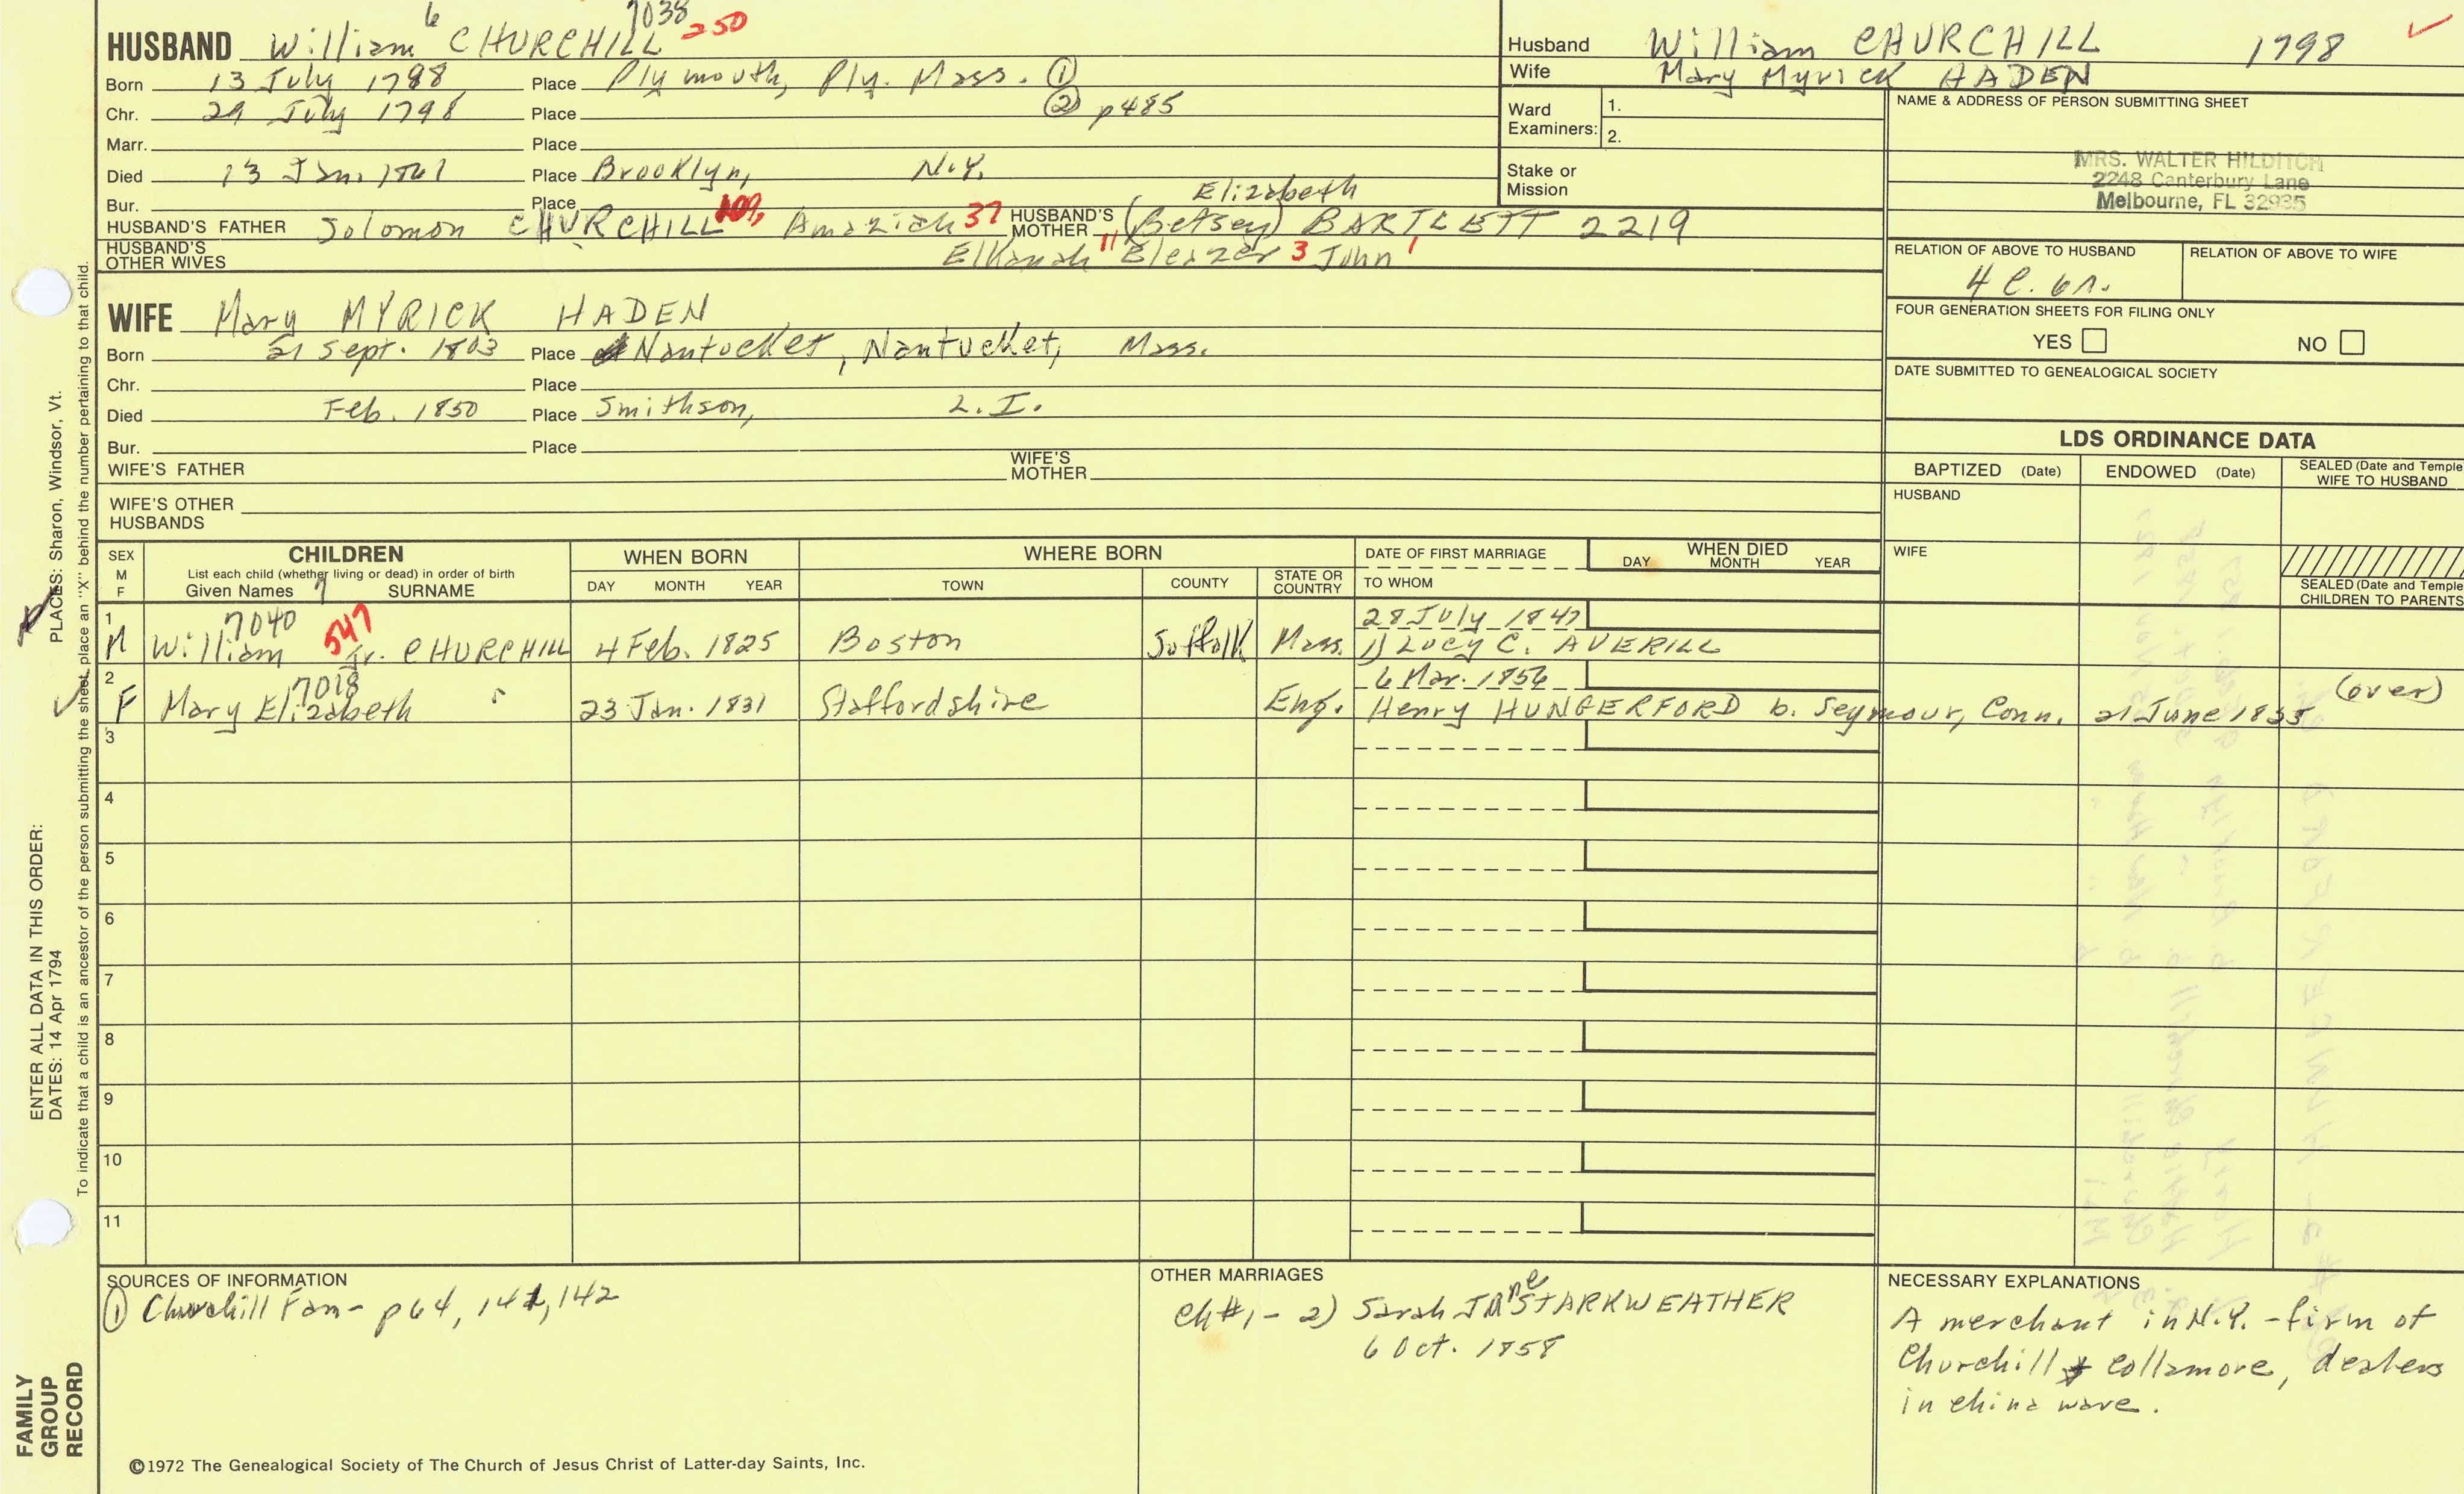 6 7038
HUSBAND William CHURCHILL 250
Born 13 July 1798 Place Plymouth, Ply. Mass. ①
Chr. 29 July 1798 Place ② p485
Marr. Place
Died 13 Jan. 1861 Place Brooklyn, N.Y.
Bur. Place
HUSBAND'S FATHER Solomon CHURCHILL 109, Amaziah 37 HUSBAND'S MOTHER Elizabeth (Betsey) BARTLETT 2219
HUSBAND'S OTHER WIVES Elkanah 11 Eleazer 3 John 1
Husband William CHURCHILL 1798
Wife Mary Myrick HADEN
Ward Examiners: 1.
2.
Stake or Mission
NAME & ADDRESS OF PERSON SUBMITTING SHEET
MRS. WALTER HILDITCH
2248 Canterbury Lane
Melbourne, FL 32935
RELATION OF ABOVE TO HUSBAND RELATION OF ABOVE TO WIFE
4 C. 6 r.
FOUR GENERATION SHEETS FOR FILING ONLY
YES NO
DATE SUBMITTED TO GENEALOGICAL SOCIETY
WIFE Mary MYRICK HADEN
Born 21 Sept. 1803 Place Nantucket, Nantucket, Mass.
Chr. Place
Died Feb. 1850 Place Smithson, L.I.
Bur. Place
WIFE'S FATHER WIFE'S MOTHER
WIFE'S OTHER HUSBANDS
LDS ORDINANCE DATA
BAPTIZED (Date) ENDOWED (Date) SEALED (Date and Temple WIFE TO HUSBAND
HUSBAND
WIFE
SEALED (Date and Temple
CHILDREN TO PARENTS
SEX M F CHILDREN WHEN BORN WHERE BORN DATE OF FIRST MARRIAGE WHEN DIED
List each child (whether living or dead) in order of birth
Given Names 7 SURNAME DAY MONTH YEAR TOWN COUNTY STATE OR COUNTRY TO WHOM DAY MONTH YEAR
1 7040 547 28 July 1847
M William Jr. CHURCHILL 4 Feb. 1825 Boston Suffolk Mass. 1) Lucy C. AVERILL
2 7018 6 Mar. 1856 (over)
F Mary Elizabeth " 23 Jan. 1831 Staffordshire Eng. Henry HUNGERFORD b. Seymour, Conn. 21 June 1835
3
4
5
6
7
8
9
10
11
SOURCES OF INFORMATION
① Churchill Fam- p64, 141, 142
OTHER MARRIAGES
Ch #1 - 2) Sarah Jane STARKWEATHER
6 Oct. 1858
NECESSARY EXPLANATIONS
A merchant in N.Y. - firm of
Churchill & Collamore, dealers
in china ware.
©1972 The Genealogical Society of The Church of Jesus Christ of Latter-day Saints, Inc.
FAMILY
GROUP
RECORD
ENTER ALL DATA IN THIS ORDER:
DATES: 14 Apr 1794 PLACES: Sharon, Windsor, Vt.
To indicate that a child is an ancestor of the person submitting the sheet, place an "X" behind the number pertaining to that child.